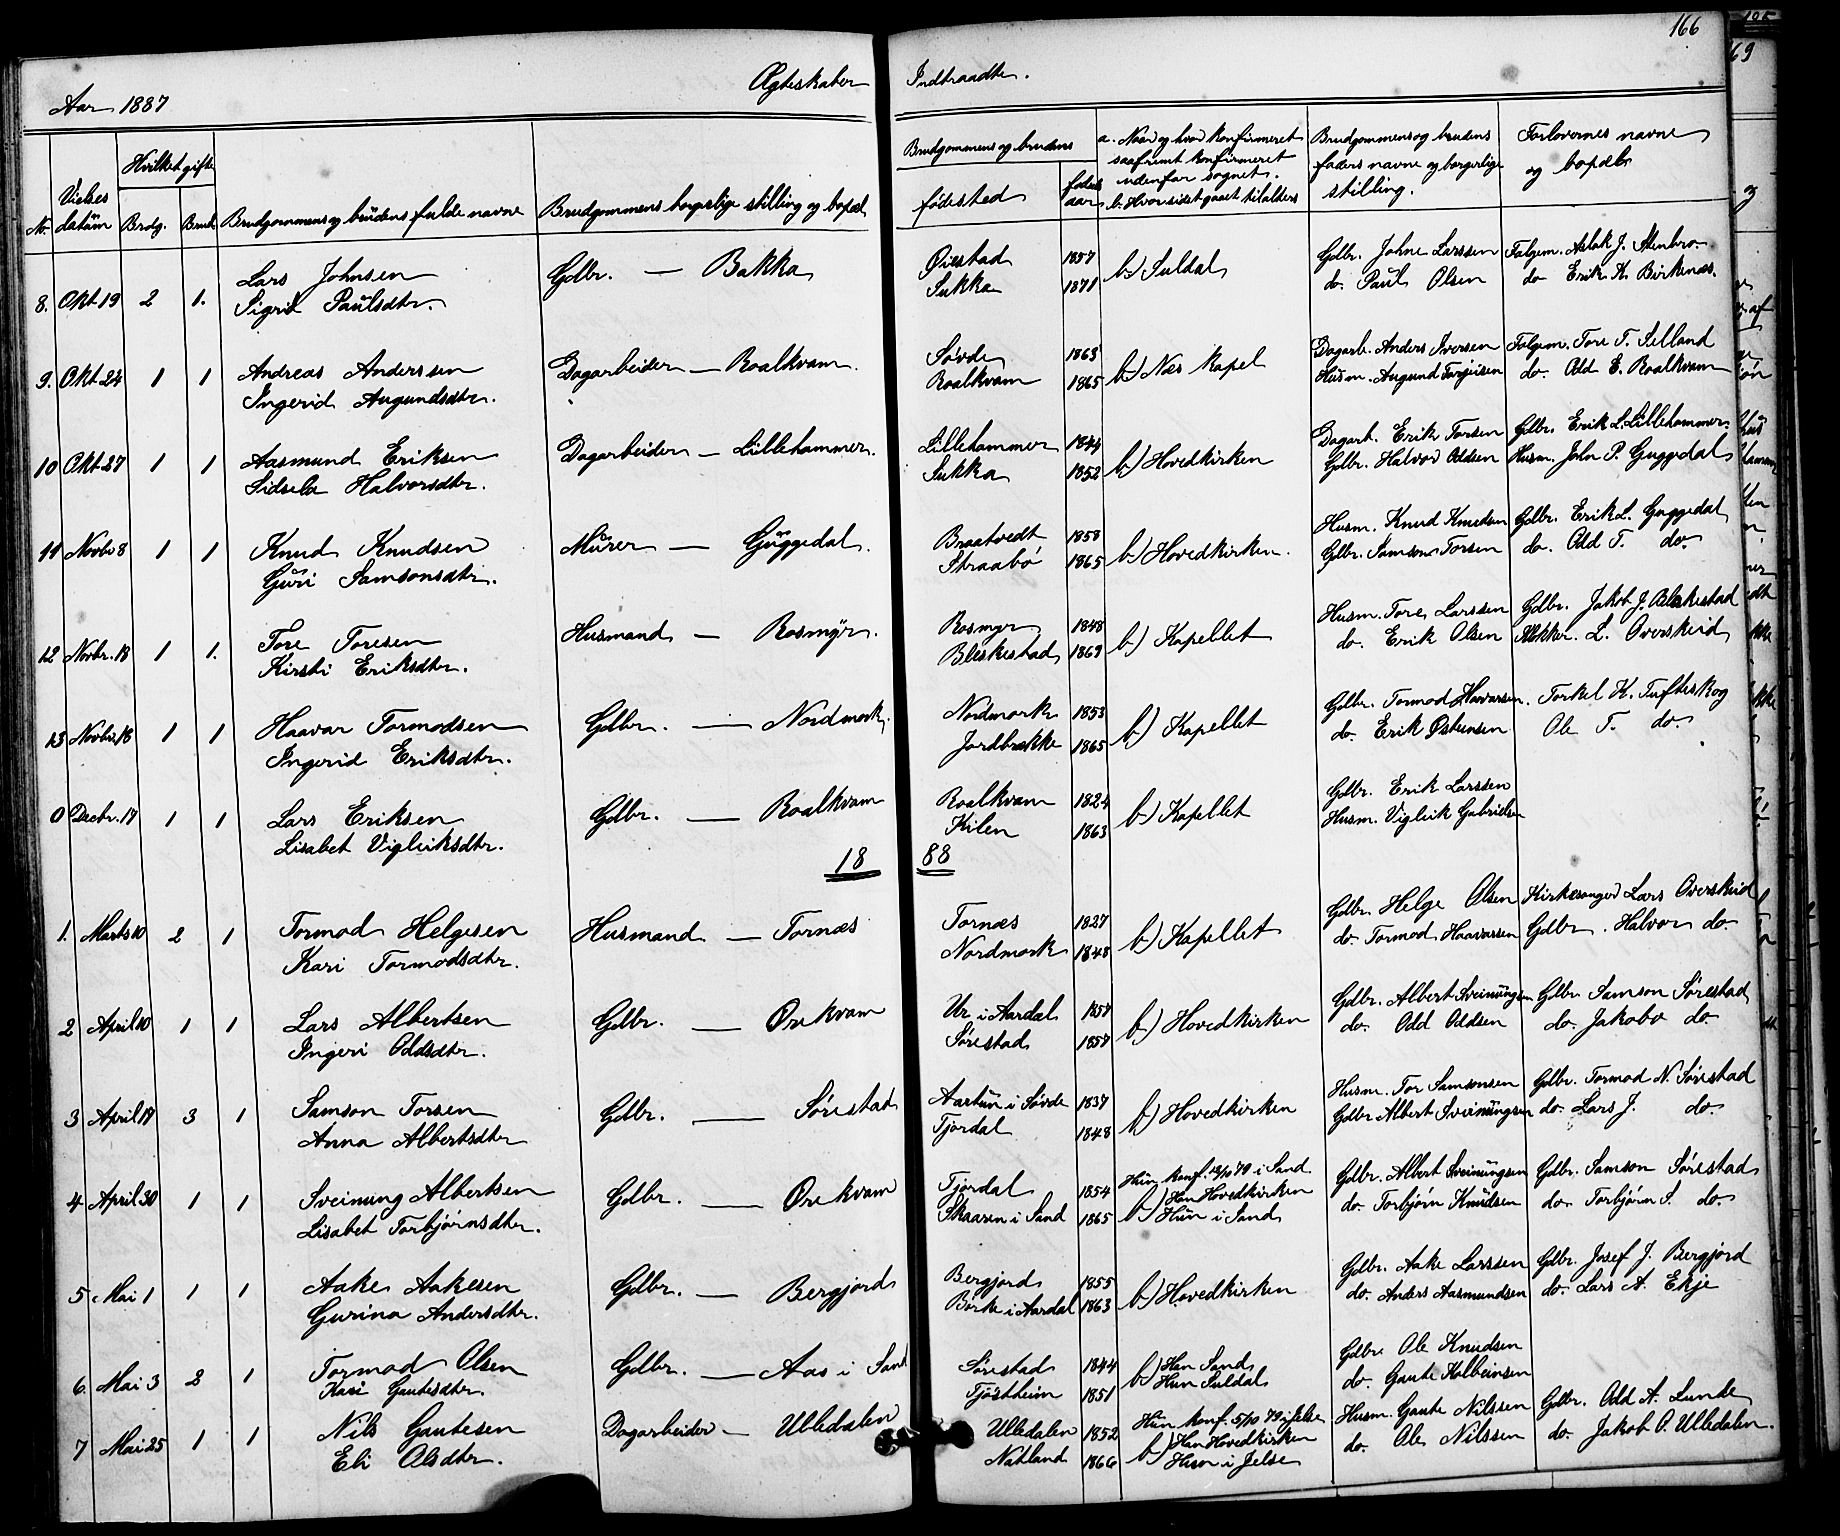 166
Ægteskaber Indtraadte.
Aar 1887
No. Vielses datum Hvilket gifte Brdg. Brud. Brudgommens og brudens fulde navne Brudgommens borgerlige stilling og bopæl Brudgommens og brudens fødested fødselsaar a. Naar og hvor konfirmeret saafremt konfirmeret udenfor sognet. b. Hvor sidst gaaet til alters Brudgommens og brudens faders navne og borgerlige stilling. Forlovernes navne og bopæl
8. Okt 19 2 1. Lars Johnsen Gdbr. — Bakka Øiestad 1857 b) Suldal Gdbr. Johne Larssen Folgem. Aslak J. Stenbro
Sigrid Paulsdtr. Sukka 1871 do. Paul Olsen do Erik K. Birkenæs.
9. Okt 24 1 1 Andreas Anderssen Dagarbeider — Roalkvam. Søvde 1863 b) Næs Kapel Dagarb. Anders Iversen Folgem. Tore T. Selland
Ingerid Augundsdtr. Roalkvam 1865 Husm. Augund Torgeisen do. Odd E. Roalkvam
10 Okt 27 1 1 Aasmund Eriksen Dagarbeider — Lillehammer. Lillehammer 1844 b) Hovedkirken Dagarb. Erik Torsen Gdbr. Erik L. Lillehammer
Sidsela Halvorsdtr. Sukka 1852 Gdbr. Halvor Oddsen Husm. John P. Guggedal
11 Novbr 8 1 1 Knud Knudsen Murer — Guggedal. Braatvedt 1858 b) Hovedkirken. Husm. Knud Knudsen Gdbr. Erik L. Guggedal
Guri Samsonsdtr. Straabø 1865 Gdbr. Samson Torsen do. Odd T. do.
12 Novbr. 18 1 1. Tore Toresen Husmand — Rosmyr. Rosmyr 1848 b) Kapellet Husm. Tore Larssen Gdbr. Jakob J. Bleskestad
Kirsti Eriksdtr. Bleskestad 1869 do. Erik Olsen Klokker. L. Overskeid
13 Novbr 18 1 1 Haavar Tormodsen Gdbr. — Nordmork. Nordmork 1853 b) Kapellet Gdbr. Tormod Haavarssen. Torkel K. Tufteskog
Ingerid Eriksdtr. Jordbrekke 1865 do. Erik Østensen Ole T. do.
0 Decbr. 17 1 1 Lars Eriksen Gdbr. — Roalkvam Roalkvam 1824 b) Kapellet Gdbr. Erik Larssen
Lisabet Vigleiksdtr. Kilen 1863 Husm. Vigleik Gabrielsen
18 88
1. Marts 10 2 1 Tormod Helgesen Husmand — Tornæs Tornæs 1827 b) Kapellet Gdbr. Helge Olsen Kirkesanger Lars Overskeid
Kari Tormodsdtr. Nordmork 1848 do. Tormod Haavarssen Gdbr. Halvor do.
2 April 10 1 1 Lars Albertsen Gdbr. — Ørekvam Ur i Aardal 1857 b) Hovedkirken Gdbr. Albert Sveinungsen Gdbr. Samson Sørestad
Ingeri Oddsdtr. Sørestad 1857 do. Odd Oddsen do. Jakob do
3 April 17 3 1 Samson Torsen Gdbr. — Sørestad Aartun i Søvde 1837 b) Hovedkirken Husm. Tor Samsonsen Gdbr. Tormod N. Sørestad
Anna Albertsdtr Tjordal 1848 Gdbr Albert Sveinungsen do. Lars J. do.
4 April 30 1 1 Sveinung Albertsen Gdbr. — Ørekvam Tjordal 1854 Hun konf. 12/10 79 i Sand. Gdbr. Albert Sveinungsen Gdbr. Samson Sørestad
Lisabet Torbjørnsdtr. Skaaren i Sand 1865 b) Han Hovedkirken Hun i Sand do. Torbjørn Knudsen do. Torbjørn S. do.
5 Mai 1 1 1 Aake Aakesen Gdbr. — Bergjord Bergjord 1855 b) Hovedkirken Gdbr. Aake Larssen Gdbr. Josef J. Bergjord
Gurina Andersdtr. Borke i Aardal 1863 do. Anders Aasmundsen do. Lars A. Ekje
6. Mai 3 2 1 Tormod Olsen Gdbr. — Aas i Sand Sørestad 1844 b) Han Sand Gdbr. Ole Knudsen
Kari Gautesdtr. Tjøstheim 1851 Hun Suldal do. Gaute Kolbeinsen
7 Mai 25 1 1 Nils Gautesen Dagarbeider — Ulledalen Ulledalen 1852 Hun konf. 5/10 79 i Jelse Husm. Gaute Nilssen Gdbr. Odd A. Lunde
Eli Olsdtr. Natland 1866 b) Han Hovedkirken Hun i Jelse do. Ole Nilssen do. Jakob O. Ulledalen.